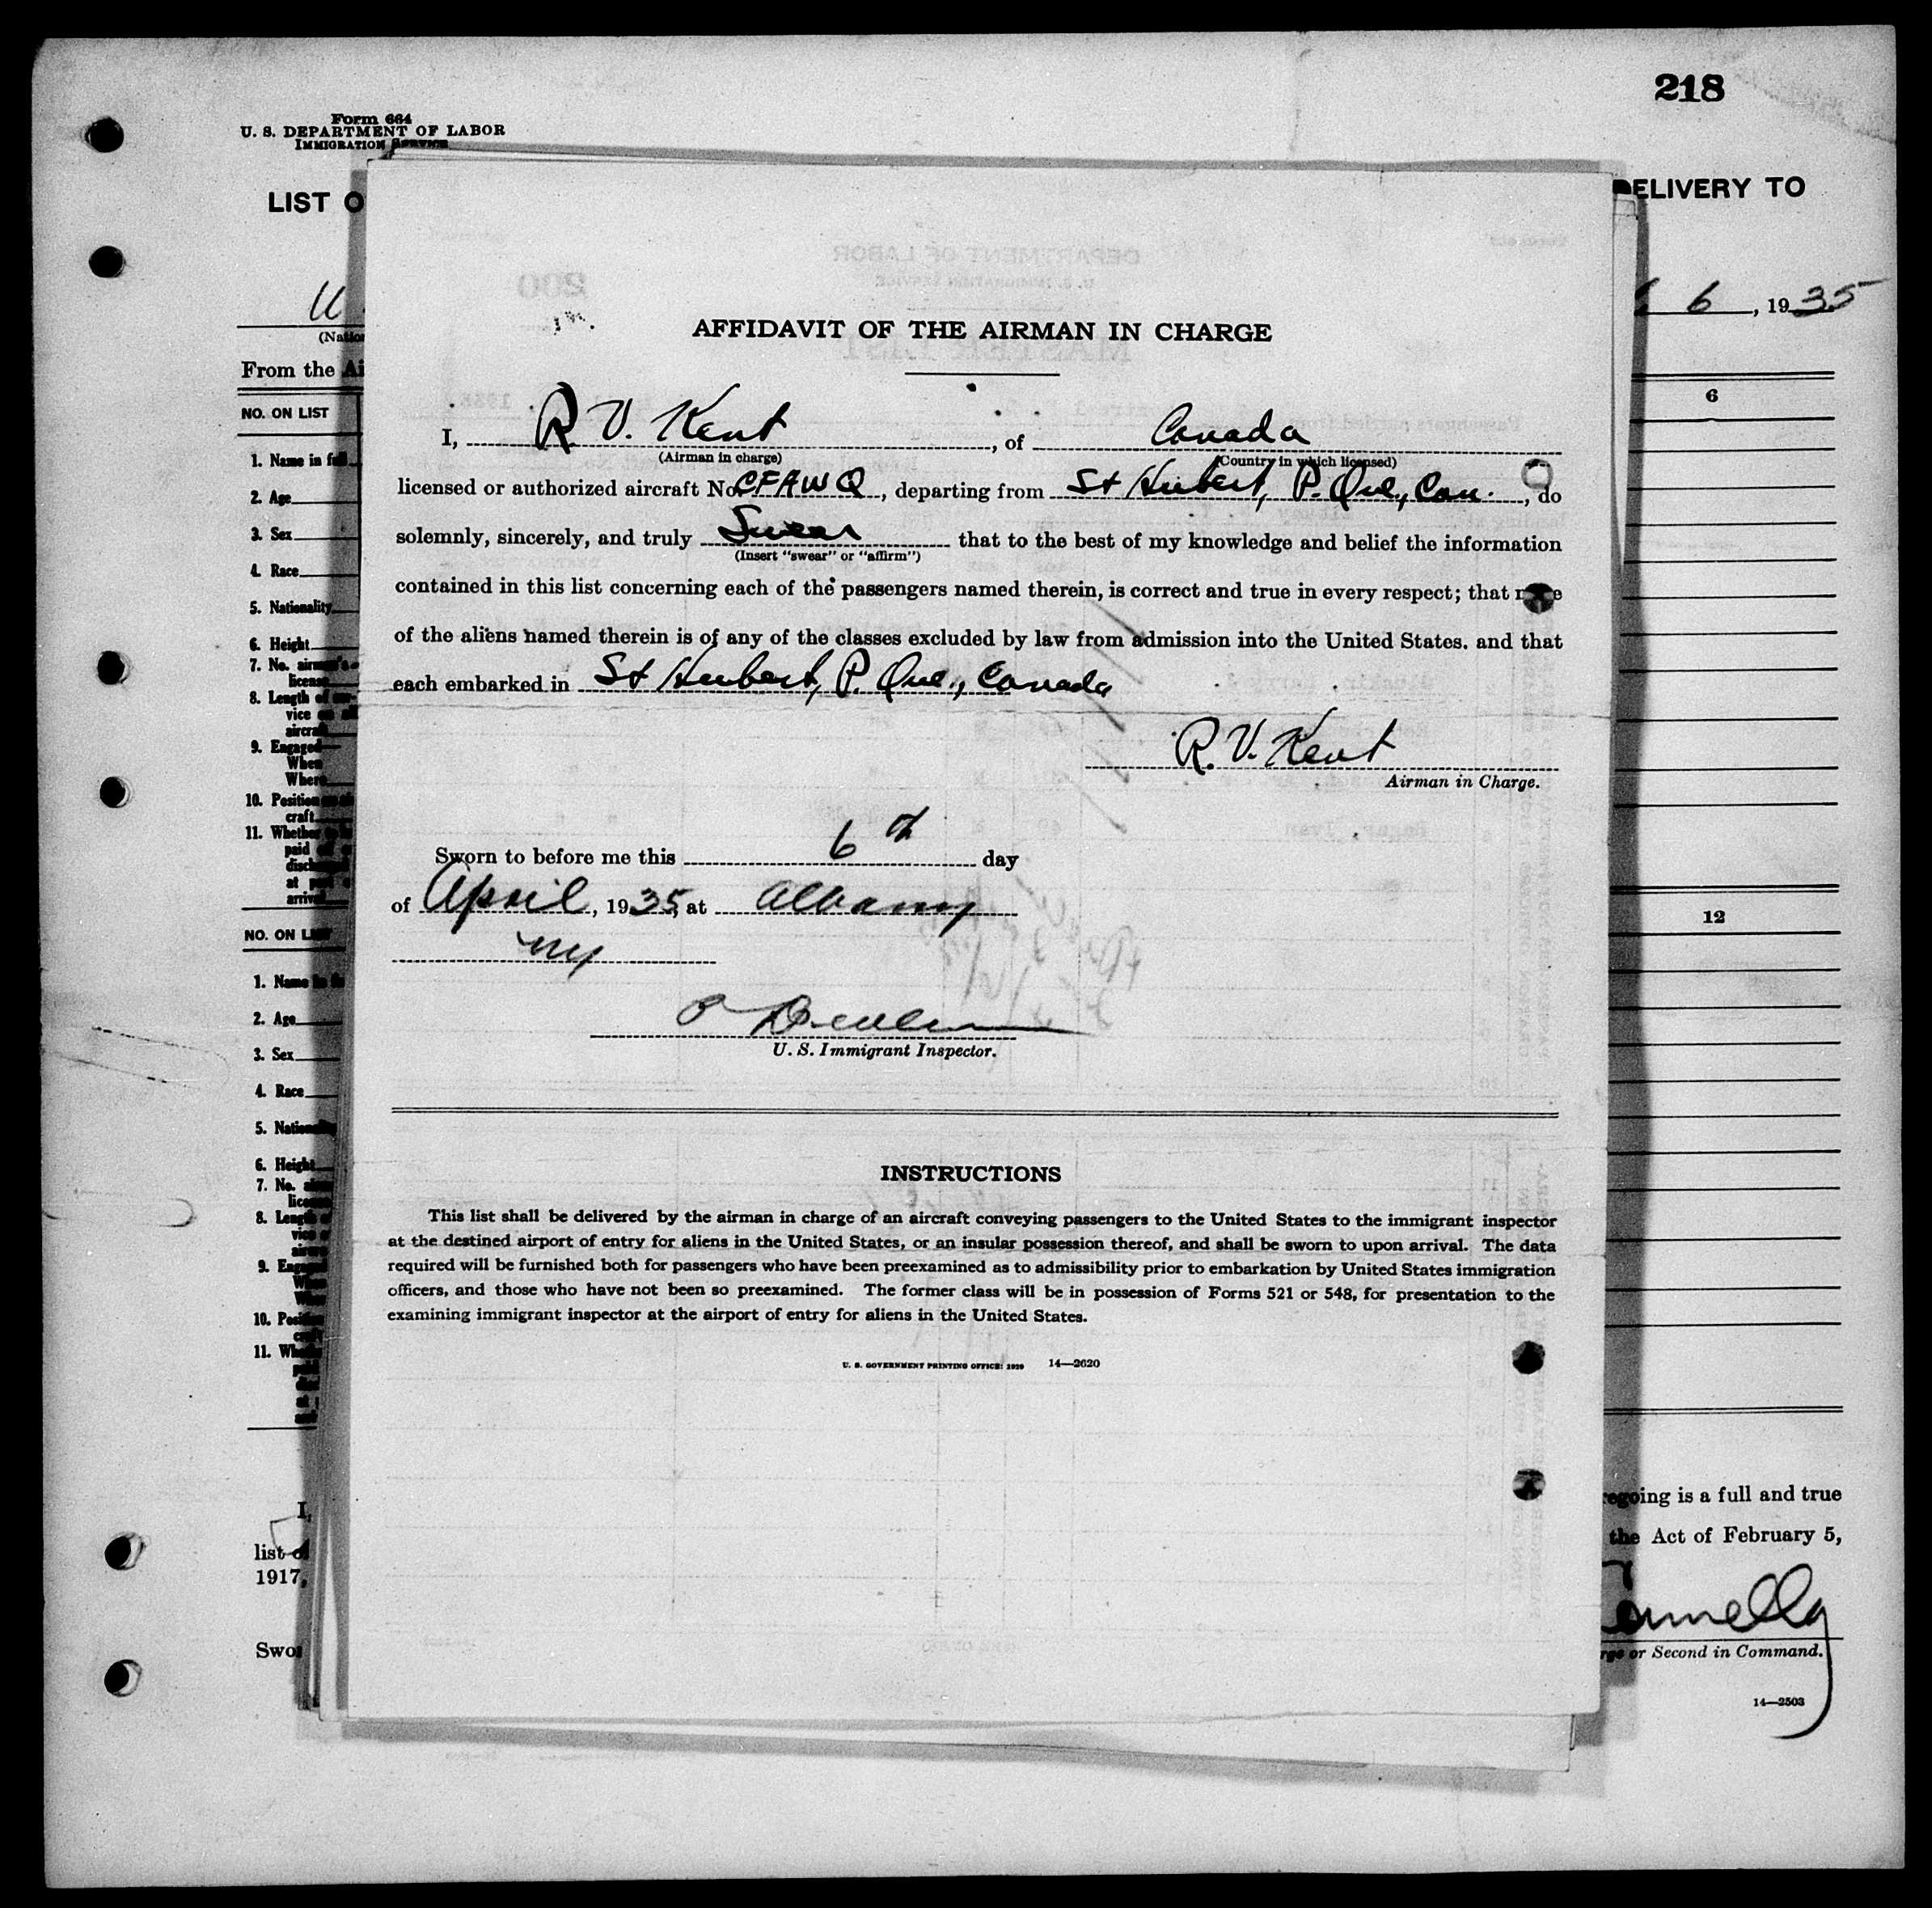 218
Form 664
U. S. DEPARTMENT OF LABOR
IMMIGRATION SERVICE
LIST O
ELIVERY TO
U
6, 1935
From the Ai
NO. ON LIST
6
1. Name in full
2. Age
3. Sex
4. Race
5. Nationality
6. Height
7. No. airman's
license
8. Length of
vice
aircraft
9. Engaged
When
Where
10. Position
craft
11. Whether
paid
at
NO. ON LIST
12
1. Name
2. Age
3. Sex
4. Race
5. Nation
6. Height
7. No.
8. Length
9. Engaged
10. Position
11.
AFFIDAVIT OF THE AIRMAN IN CHARGE
I, R. V. Kent, of Canada
(Airman in charge) (Country in which licensed)
licensed or authorized aircraft No. CFAWQ, departing from St Hubert, P. Que., Can., do
solemnly, sincerely, and truly Swear that to the best of my knowledge and belief the information
(Insert "swear" or "affirm")
contained in this list concerning each of the passengers named therein, is correct and true in every respect; that none
of the aliens named therein is of any of the classes excluded by law from admission into the United States. and that
each embarked in St Hubert, P. Que., Canada
R. V. Kent
Airman in Charge.
Sworn to before me this 6th day
of April, 1935, at Albany
NY
U. S. Immigrant Inspector.
INSTRUCTIONS
This list shall be delivered by the airman in charge of an aircraft conveying passengers to the United States to the immigrant inspector
at the destined airport of entry for aliens in the United States, or an insular possession thereof, and shall be sworn to upon arrival. The data
required will be furnished both for passengers who have been preexamined as to admissibility prior to embarkation by United States immigration
officers, and those who have not been so preexamined. The former class will be in possession of Forms 521 or 548, for presentation to the
examining immigrant inspector at the airport of entry for aliens in the United States.
U. S. GOVERNMENT PRINTING OFFICE: 1929 14—2620
I,
egoing is a full and true
list
the Act of February 5,
1917,
Swor
or Second in Command.
14—2503